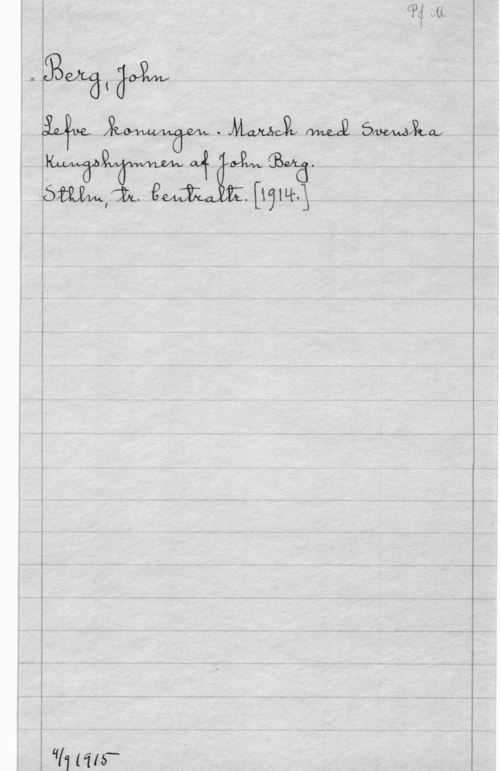 Pf M
Berg, John
Lefve konungen. Marsch med Svenska
Kungshymnen af John Berg.
Sthlm, tr. Centraltr. [1914.]
4/9 1915